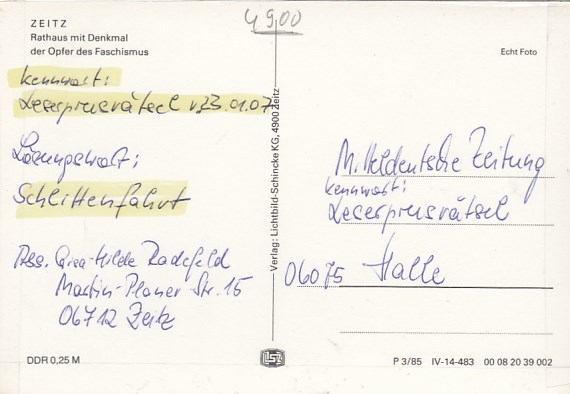 4900
ZEITZ
Rathaus mit Denkmal
der Opfer des Faschismus
Echt Foto
Kennwort:
Leserpreisrätsel v. 23.01.07
Lösungswort:
Schlittenfahrt
Abs. Gisa-Hilde Radefeld
Martin-Planer Str. 15
06712 Zeitz
Verlag: Lichtbild-Schincke KG, 4900 Zeitz
Mitteldeutsche Zeitung
Kennwort:
Leserpreisrätsel
06075 Halle
DDR 0,25 M
P 3/85 IV-14-483 00 08 20 39 002